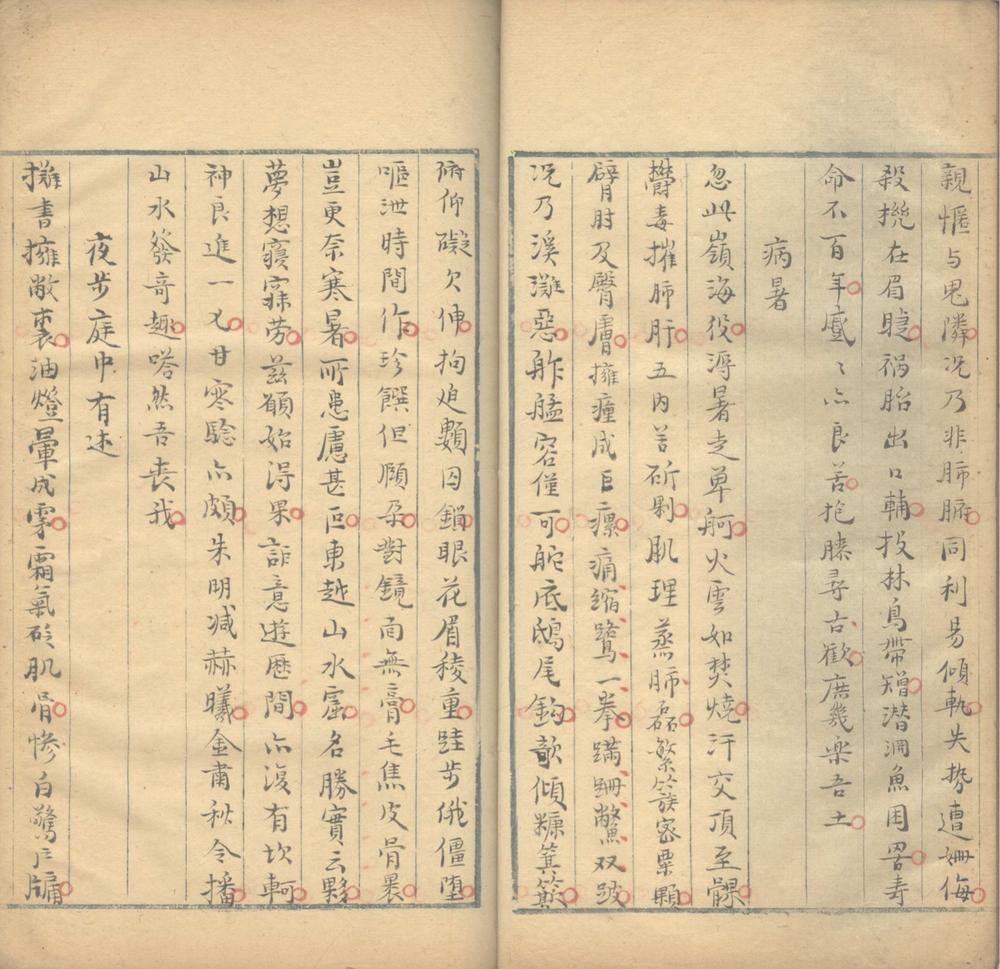 親慪与鬼隣况乃非肺腑同利易傾軌失势遭姍侮
殺㧯在眉睫祸胎出口輔投林鳥帶矰潛淵魚困罟寿
命不百年慼〻亦良苦抱膝尋古歡庶幾樂吾土
病暑
忽此嶺海役溽暑走单舸火雲如焚燒汗交頂至髁
欝毒摧肺肝五内苦斫剝肌理蒸肺磊繁簇密粟顆
臂肘及臀膚擁瘇成巨瘰痛缩鷺一拳蹒跚鱉双跛
况乃溪灘惡舴艋容僅可舵底鴟尾鈎欹傾糠箕簸
俯仰礙欠伸拘迫類囚鎖眼花眉稜重跬步俄僵堕
嘔泄時間作珍饌但頤朶對鏡面無膏毛焦皮骨裹
豈更奈寒暑所患慮甚叵東越山水窟名勝實云夥
夢想寝寐劳兹願始淂果詎意遊歷間亦復有坎軻
神良進一匕甘寒騐亦頗朱明减赫曦金肅秋令播
山水發奇趣嗒然吾丧我
夜步庭中有述
攤書擁敝裘油燈暈成雺霜氣砭肌骨惨白驚戸牖